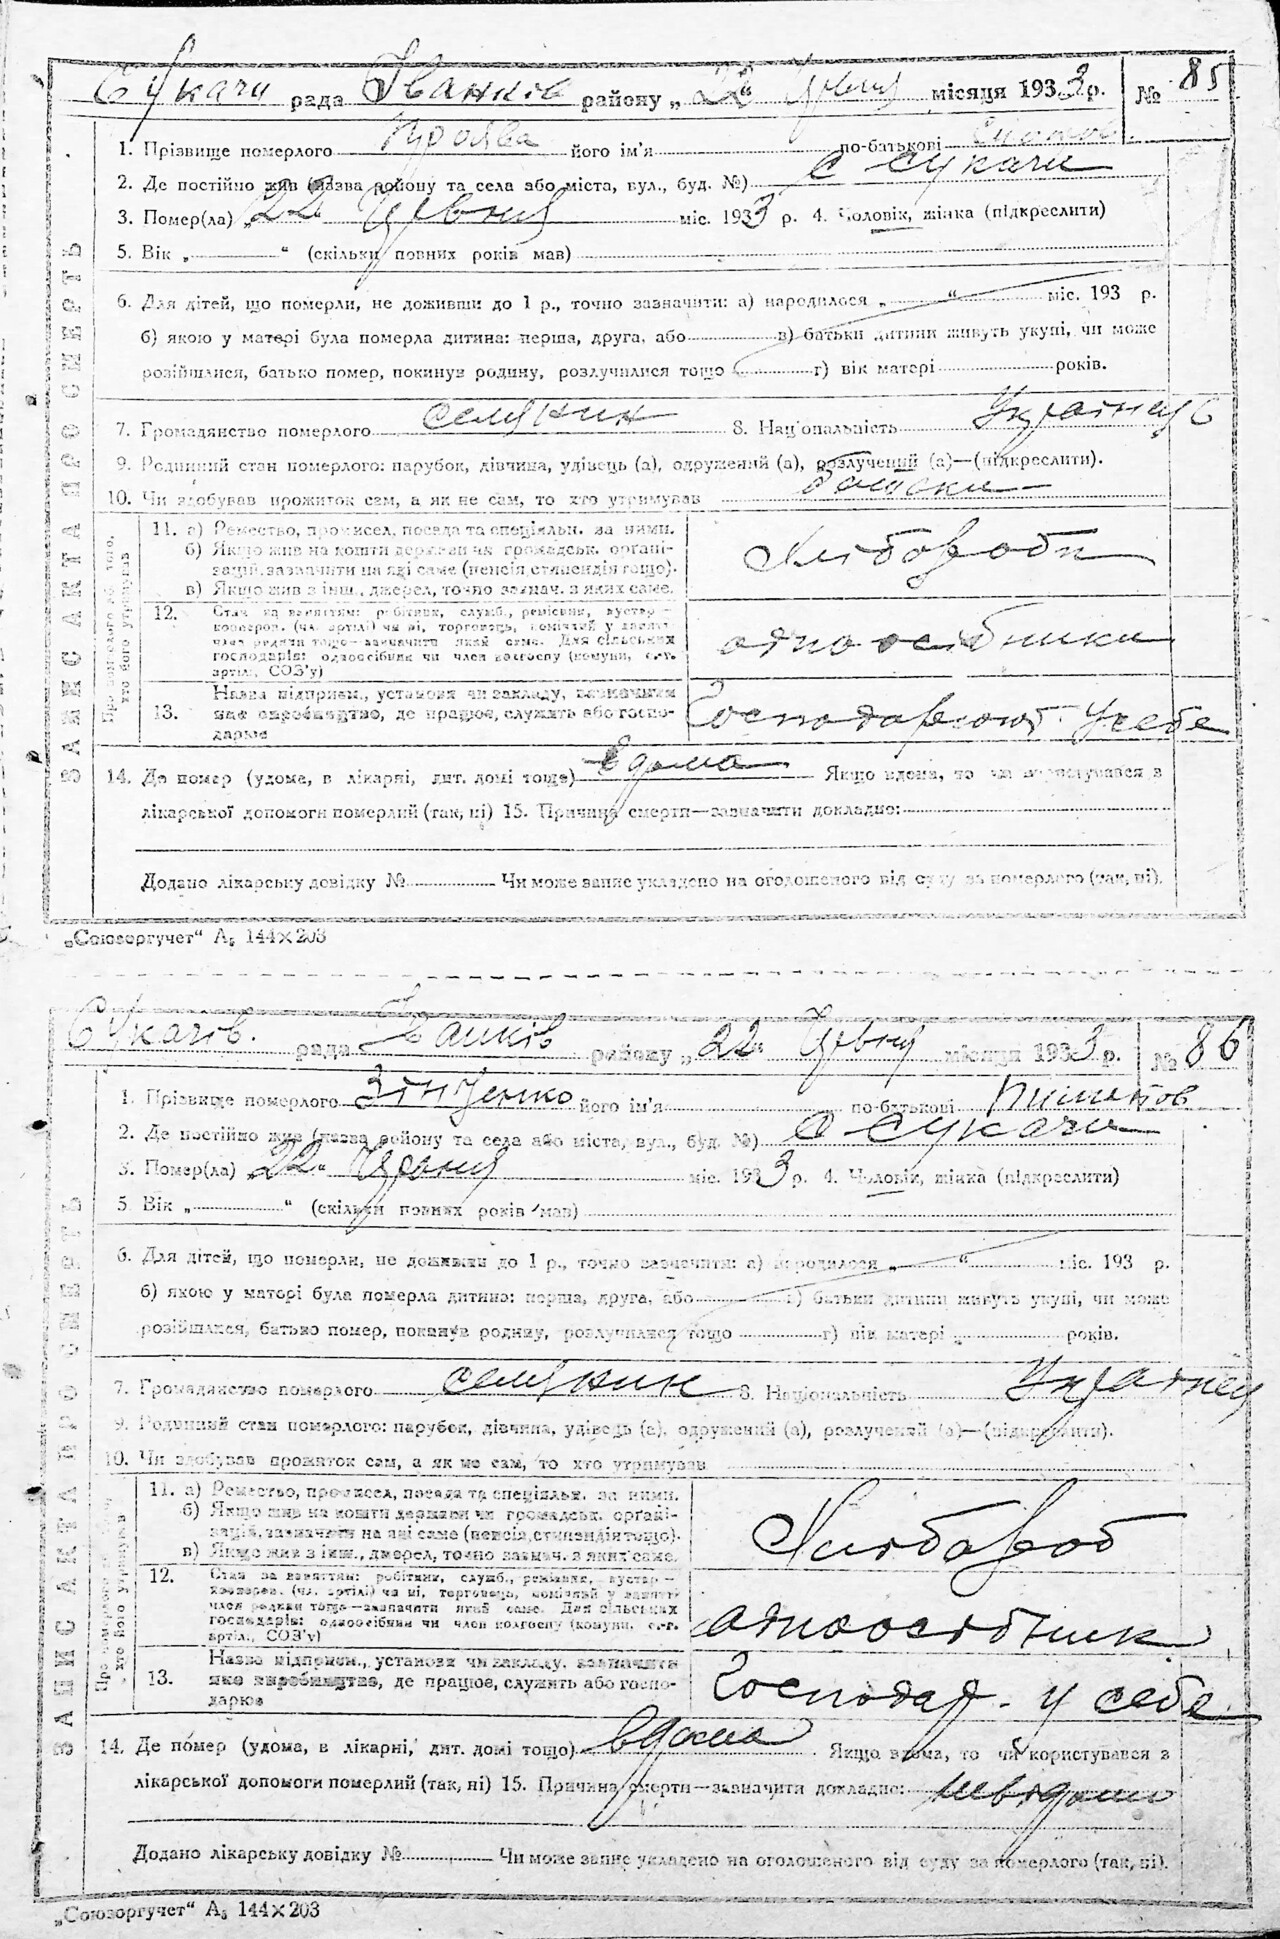 Сукачи рада Іванків району „22“ Червня місяця 1933 р. № 85
1. Прізвище померлого його ім'я по-батькові
2. Де постійно жив (назва району та села або міста, вул., буд. №) с Сукачи
3. Помер(ла) „22“ Червня міс. 1933 р. 4. Чоловік, жінка (підкреслити)
5. Вік „ “ (скільки повних років мав)
6. Для дітей, що померли, не доживши до 1 р., точно зазначити: а) народилося „ “ міс. 193 р.
б) якою у матері була померла дитина: перша, друга, або в) батьки дитини живуть укупі, чи може
розійшлися, батько помер, покинув родину, розлучилися тощо г) вік матері років.
7. Громадянство померлого селянин 8. Національність Українец
9. Родинний стан померлого: парубок, дівчина, удівець (а), одружений (а), розлучений (а)—(підкреслити).
10. Чи здобував прожиток сам, а як не сам, то хто утримував батьки
ЗАПИС АКТА ПРО СМЕРТЬ
11. а) Ремество, промисел, посада та спеціяльн. за ними.
б) Якщо жив на кошти держави чи громадськ. органі-
зацій, зазначити на які саме (пенсія, стипендія тощо).
в) Якщо жив з інш., джерел, точно зазнач. з яких саме.
Хлібороби
12. Стан за заняттям: робітник, служб., ремісник, кустар —
кооперов. (чл. артілі) чи ні, торговець,
член родини тощо—зазначити який саме. Для сільських
господарів: одноосібник чи член колгоспу (комуни, с.-г.
артіл., СОЗ'у)
одноосібники
13. Назва підприєм., установи чи закладу, зазначити
яке виробництво, де працює, служить або госпо-
дарює
Господарюют у себе
14. Де помер (удома, в лікарні, дит. домі тощо) вдома Якщо вдома, то чи користувався з
лікарської допомоги померлий (так, ні) 15. Причина смерти—зазначити докладно:
Додано лікарську довідку № Чи може запис укладено на оголошеного від суду за померлого (так, ні).
„Союзоргучет“ А₅ 144×203
Сукачів. рада Іванків району „22“ Червня місяця 1933 р. № 86
1. Прізвище померлого Зінченко його ім'я по-батькові
2. Де постійно жив (назва району та села або міста, вул., буд. №) с Сукачи
3. Помер(ла) „22“ Червня міс. 1933 р. 4. Чоловік, жінка (підкреслити)
5. Вік „ “ (скільки повних років мав)
6. Для дітей, що померли, не доживши до 1 р., точно зазначити: а) народилося „ “ міс. 193 р.
б) якою у матері була померла дитина: перша, друга, або в) батьки дитини живуть укупі, чи може
розійшлися, батько помер, покинув родину, розлучилися тощо г) вік матері років.
7. Громадянство померлого селянин 8. Національність Українец
9. Родинний стан померлого: парубок, дівчина, удівець (а), одружений (а), розлучений (а)—(підкреслити).
10. Чи здобував прожиток сам, а як не сам, то хто утримував
ЗАПИС АКТА ПРО СМЕРТЬ
11. а) Ремество, промисел, посада та спеціяльн. за ними.
б) Якщо жив на кошти держави чи громадськ. органі-
зацій, зазначити на які саме (пенсія, стипендія тощо).
в) Якщо жив з інш., джерел, точно зазнач. з яких саме.
Хлібороб
12. Стан за заняттям: робітник, служб., ремісник, кустар —
кооперов. (чл. артілі) чи ні, торговець,
член родини тощо—зазначити який саме. Для сільських
господарів: одноосібник чи член колгоспу (комуни, с.-г.
артіл., СОЗ'у)
одноосібник
13. Назва підприєм., установи чи закладу, зазначити
яке виробництво, де працює, служить або госпо-
дарює
Господар. у себе
14. Де помер (удома, в лікарні, дит. домі тощо) вдома Якщо вдома, то чи користувався з
лікарської допомоги померлий (так, ні) 15. Причина смерти—зазначити докладно: невідомо
Додано лікарську довідку № Чи може запис укладено на оголошеного від суду за померлого (так, ні).
„Союзоргучет“ А₅ 144×203